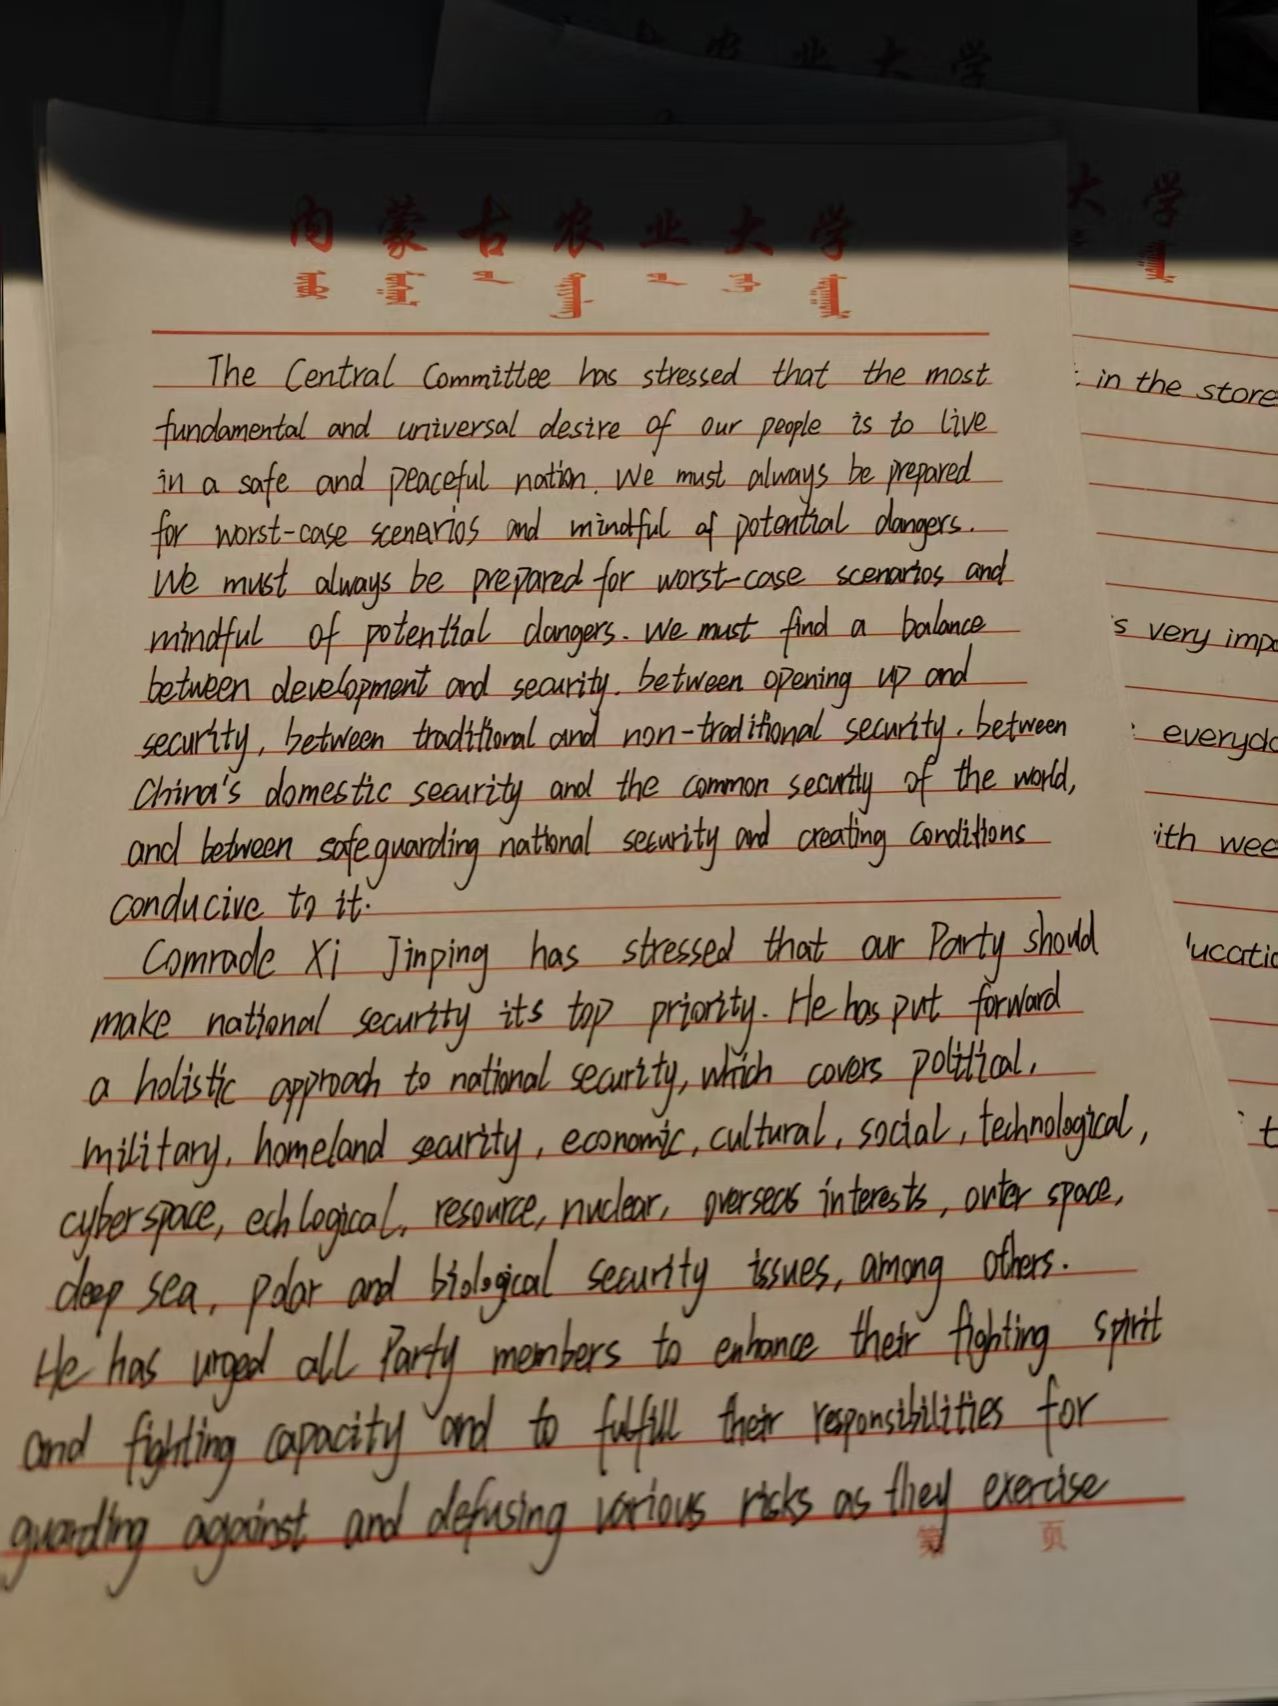 农业大学
内蒙古农业大学
大学
The Central Committee has stressed that the most
fundamental and universal desire of our people is to live
in a safe and peaceful nation. We must always be prepared
for worst-case scenarios and mindful of potential dangers.
We must always be prepared for worst-case scenarios and
mindful of potential dangers. We must find a balance
between development and security. between opening up and
security, between traditional and non-traditional security, between
China's domestic security and the common security of the world,
and between safeguarding national security and creating conditions
conducive to it.
Comrade Xi Jinping has stressed that our Party should
make national security its top priority. He has put forward
a holistic approach to national security, which covers political,
military, homeland security, economic, cultural, social, technological,
cyberspace, echlogical, resource, nuclear, overseas interests, outer space,
deep sea, polar and biological security issues, among others.
He has urged all Party members to enhance their fighting spirit
and fighting capacity and to fulfill their responsibilities for
guarding against and defusing various risks as they exercise
第 页
in the store
s very
ith